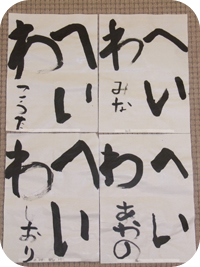 へい
わ
こうた
へい
わ
みな
へい
わ
しおり
へい
わ
あやの